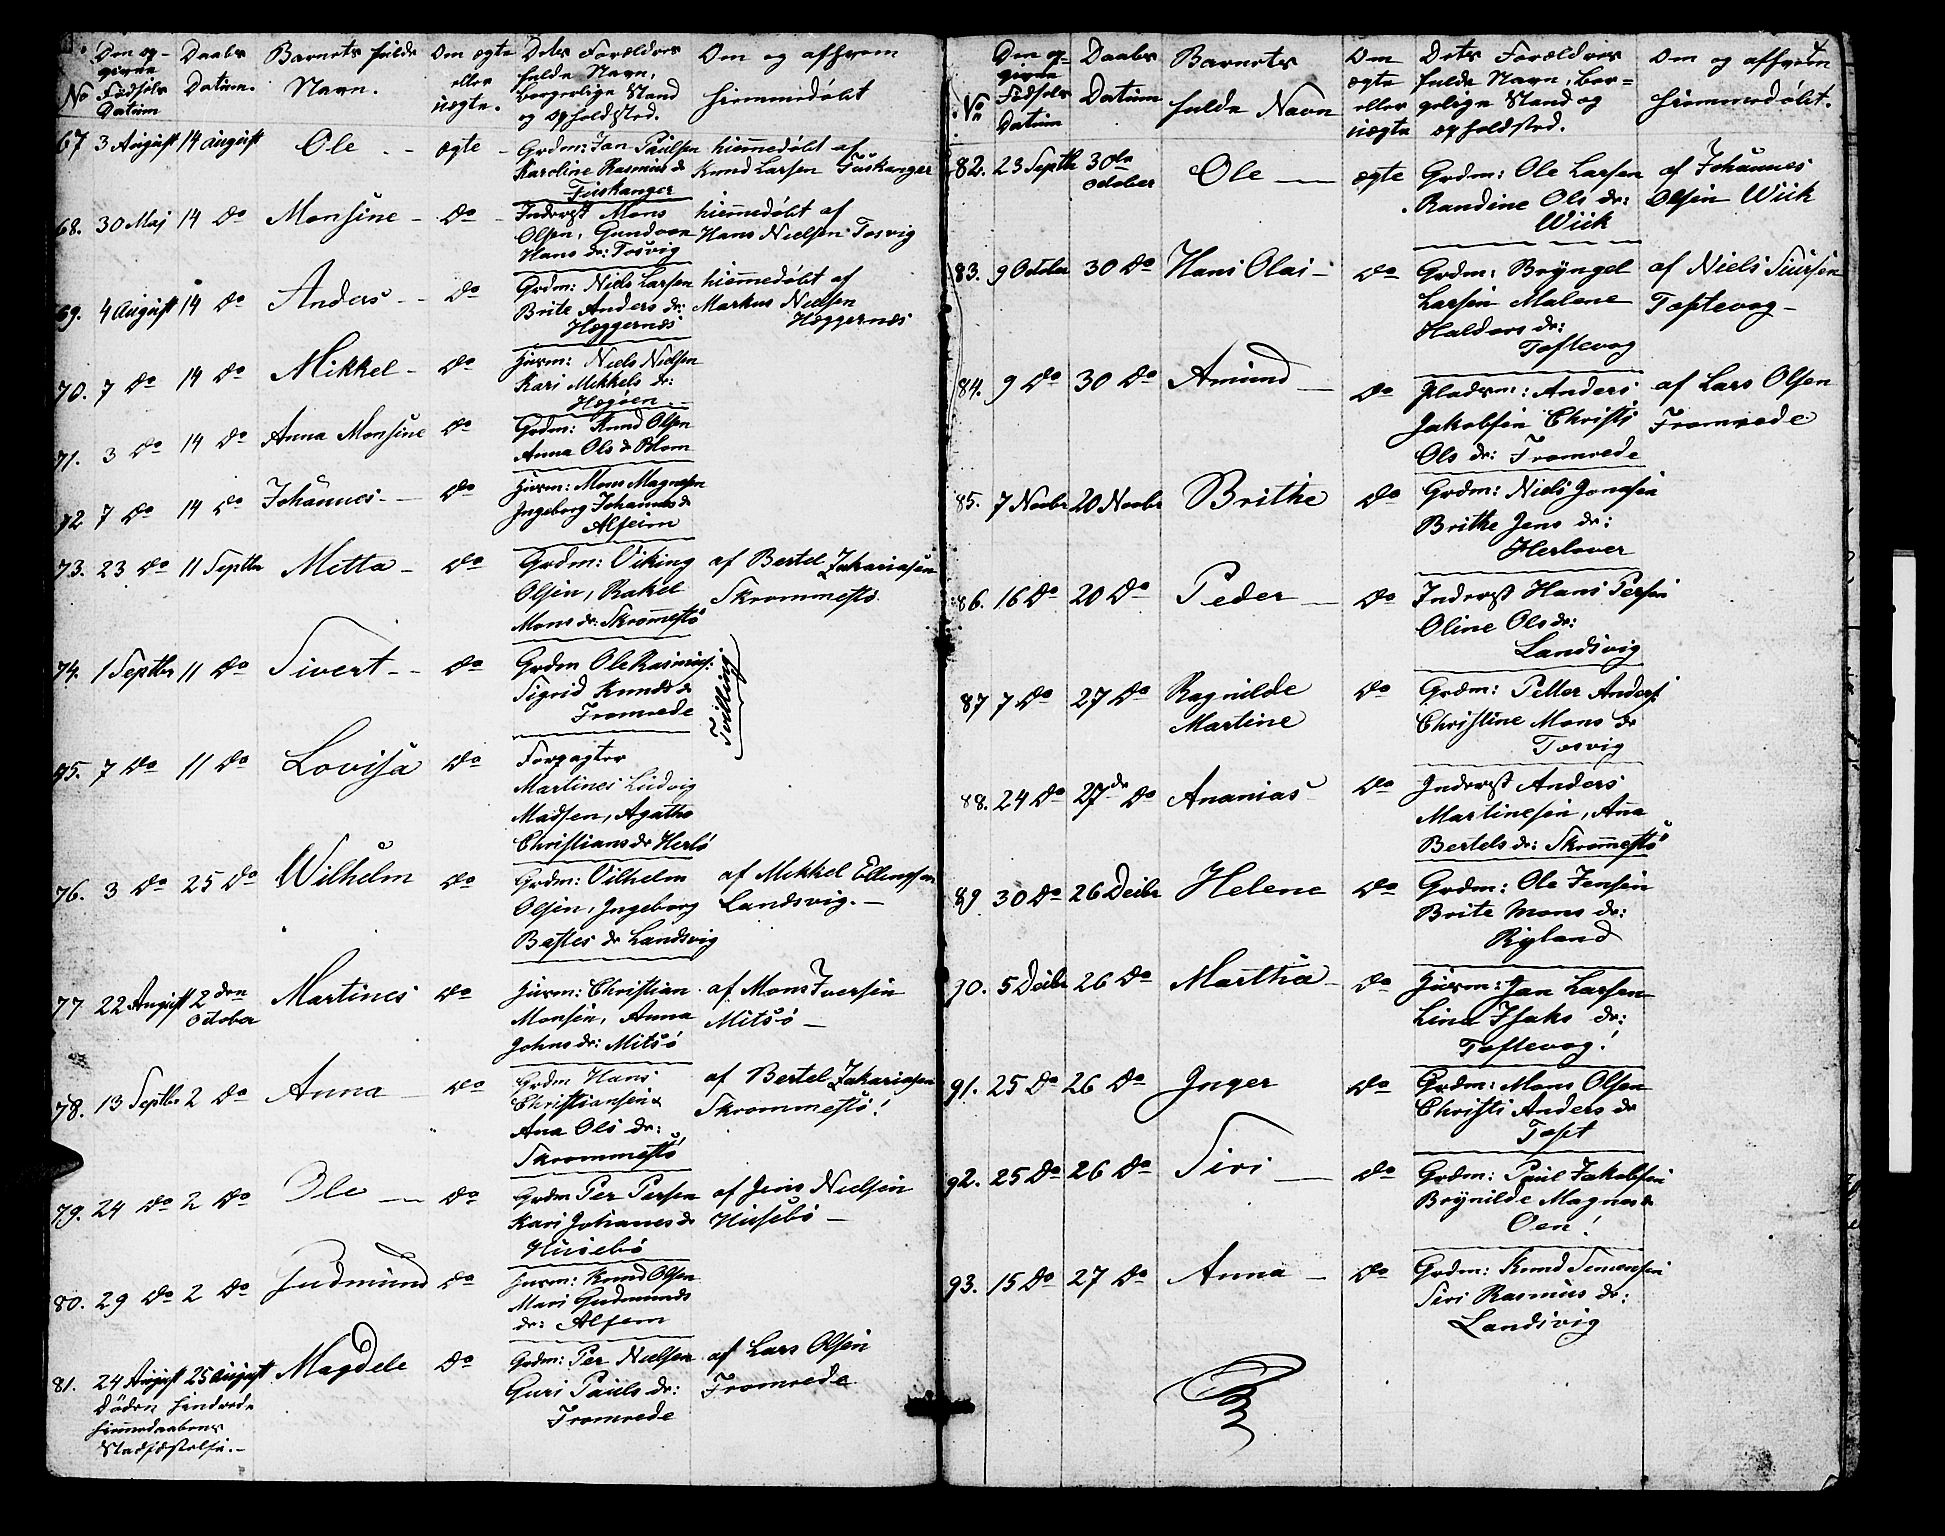 No
Den op-
givne
Fødsels
Datum
Daabs
Datum.
Barnets fulde
Navn.
Om ægte
eller
uægte.
Dets Forældres
fulde Navn,
borgerlige Stand
og Opholdsted.
Om og af hvem
hiemmedøbt
67 3 August 14 August Ole - ægte -
Grdm: Jan Paulsen
Karoline Rasmus dr
Fuskanger
hiemmedøbt af
Knud Larsen Fuskanger
68. 30 Maj 14 do Monsine - do -
Inderst Mons
Olsen, Gundvor
Hans dr: Tosvig
hiemmedøbt af
Hans Nielsen Tosvig
69. 4 August 14 do Anders - - do
Grdm: Niels Larsen
Brite Anders dr:
Heggernæs
hiemmedøbt af
Markus Nielsen
Heggernæs
70. 7 do 14 do Mikkel - do
Huusm: Niels Nielsen
Kari Mikkels dr:
Hegøen
71. 3 do 14 do Anna Monsine do
Grdm: Knud Olsen
Anna Ols dr Blom
72 7 do 14 do Johannes - do
Huusm: Mons Magnesen
Ingeborg Johannes dr
Alsem
73. 23 do 11 Septbr Metta - do
Grdm: Viking
Olsen, Rakel
Mons dr: Skromestø
af Bertel Zakariasen
Skrommestø
74. 1 Septbr 11 do Sivert - - do
Grdm Ole Rasmus:
Sigrid Knuds dr
Fromrede
Tvilling
75. 7 do 11 do Lovisa do
Forpagter
Martines Ludvig
Madsen, Agathe
Christians dr Herlø
76. 3 do 25 do Wilhelm do
Grdm: Vilhelm
Olsen, Ingeborg
Bastes dr Landsvig
af Mikkel Ellingsen
Landsvig. -
77 22 August 2den October Martines do
Huusm: Christian
Monsen, Anna
Johns dr: Mitsø
af Mons Iversen
Mitsø -
78. 13 Septbr 2 do Anna - do
Grdm Hans
Christiansen
Ana Ols dr:
Skrommestø
af Bertel Zakariasen
Skrommestø!
79. 24 do 2 do Ole - do
Grdm Per Persen
Kari Johanes dr
Husebø
af Jens Nielsen
Husebø -
80. 29 do 2 do Gudmund do
Huusm: Knud Olsen
Mari Gudmunds
dr: Alsem
81. 24 August 25 August Magdele do
Døden hindrede
hiemmedaabens
Stadfæstelse. -
Grdm: Per Nielsen
Guri Pauls dr:
Fromrede
af Lars Olsen
Fromrede
4
No
Den op-
givne
Fødsels
Datum
Daabs
Datum
Barnets
fulde Navn
Om
ægte
eller
uægte
Dets Forældres
fulde Navn, bor-
gelige Stand og
opholdsted.
Om og af hvem
hiemmedøbt.
82. 23 Septbr 30de October Ole - ægte
Grdm: Ole Larsen
Randine Ols dr:
Wiik
af Johannes
Olsen Wiik
83. 9 Octobr 30 do Hans Olai - do
Grdm: Brÿngel
Larsen Malene
Haldors dr:
Toftevog
af Niels Siursen
Toftevog -
84. 9 do 30 do Amund - do
Pladsm: Anders
Jakobsen Christi
Ols dr: Fromrede
af Lars Olsen
Fromrede
85. 7 Novbr 20 Novbr Brithe do
Grdm: Niels Jonasen
Brithe Jens dr:
Herlover
86. 16 do 20 do Peder - do
Inderst Hans Persen
Oline Ols dr:
Landsvig
87 7 do 27 do Ragnilde Martine do
Grdm: Petter Anders:
Christine Mons dr
Tosvig
88. 24 do 27de do Ananias do
Inderst Anders
Martinesen, Ana
Bertels dr: Skromestø
89 30 do 26 Decbr Helene do
Grdm: Ole Jensen
Brite Mons dr:
Rÿland
90. 5 Decbr 26 do Martha - do
Huusm: Jan Larsen
Lina Isaks dr:
Toftevog!
91. 25 do 26 do Inger do
Grdm: Mons Olsen
Christi Anders dr
Toft
92. 25 do 26 do Siri - do
Grdm: Paul Jakobsen
Brÿnilde Magnes dr
Oen!
93. 15 do 27 do Anna - do
Grdm: Knud Simonsen
Siri Rasmus dr:
Landsvig